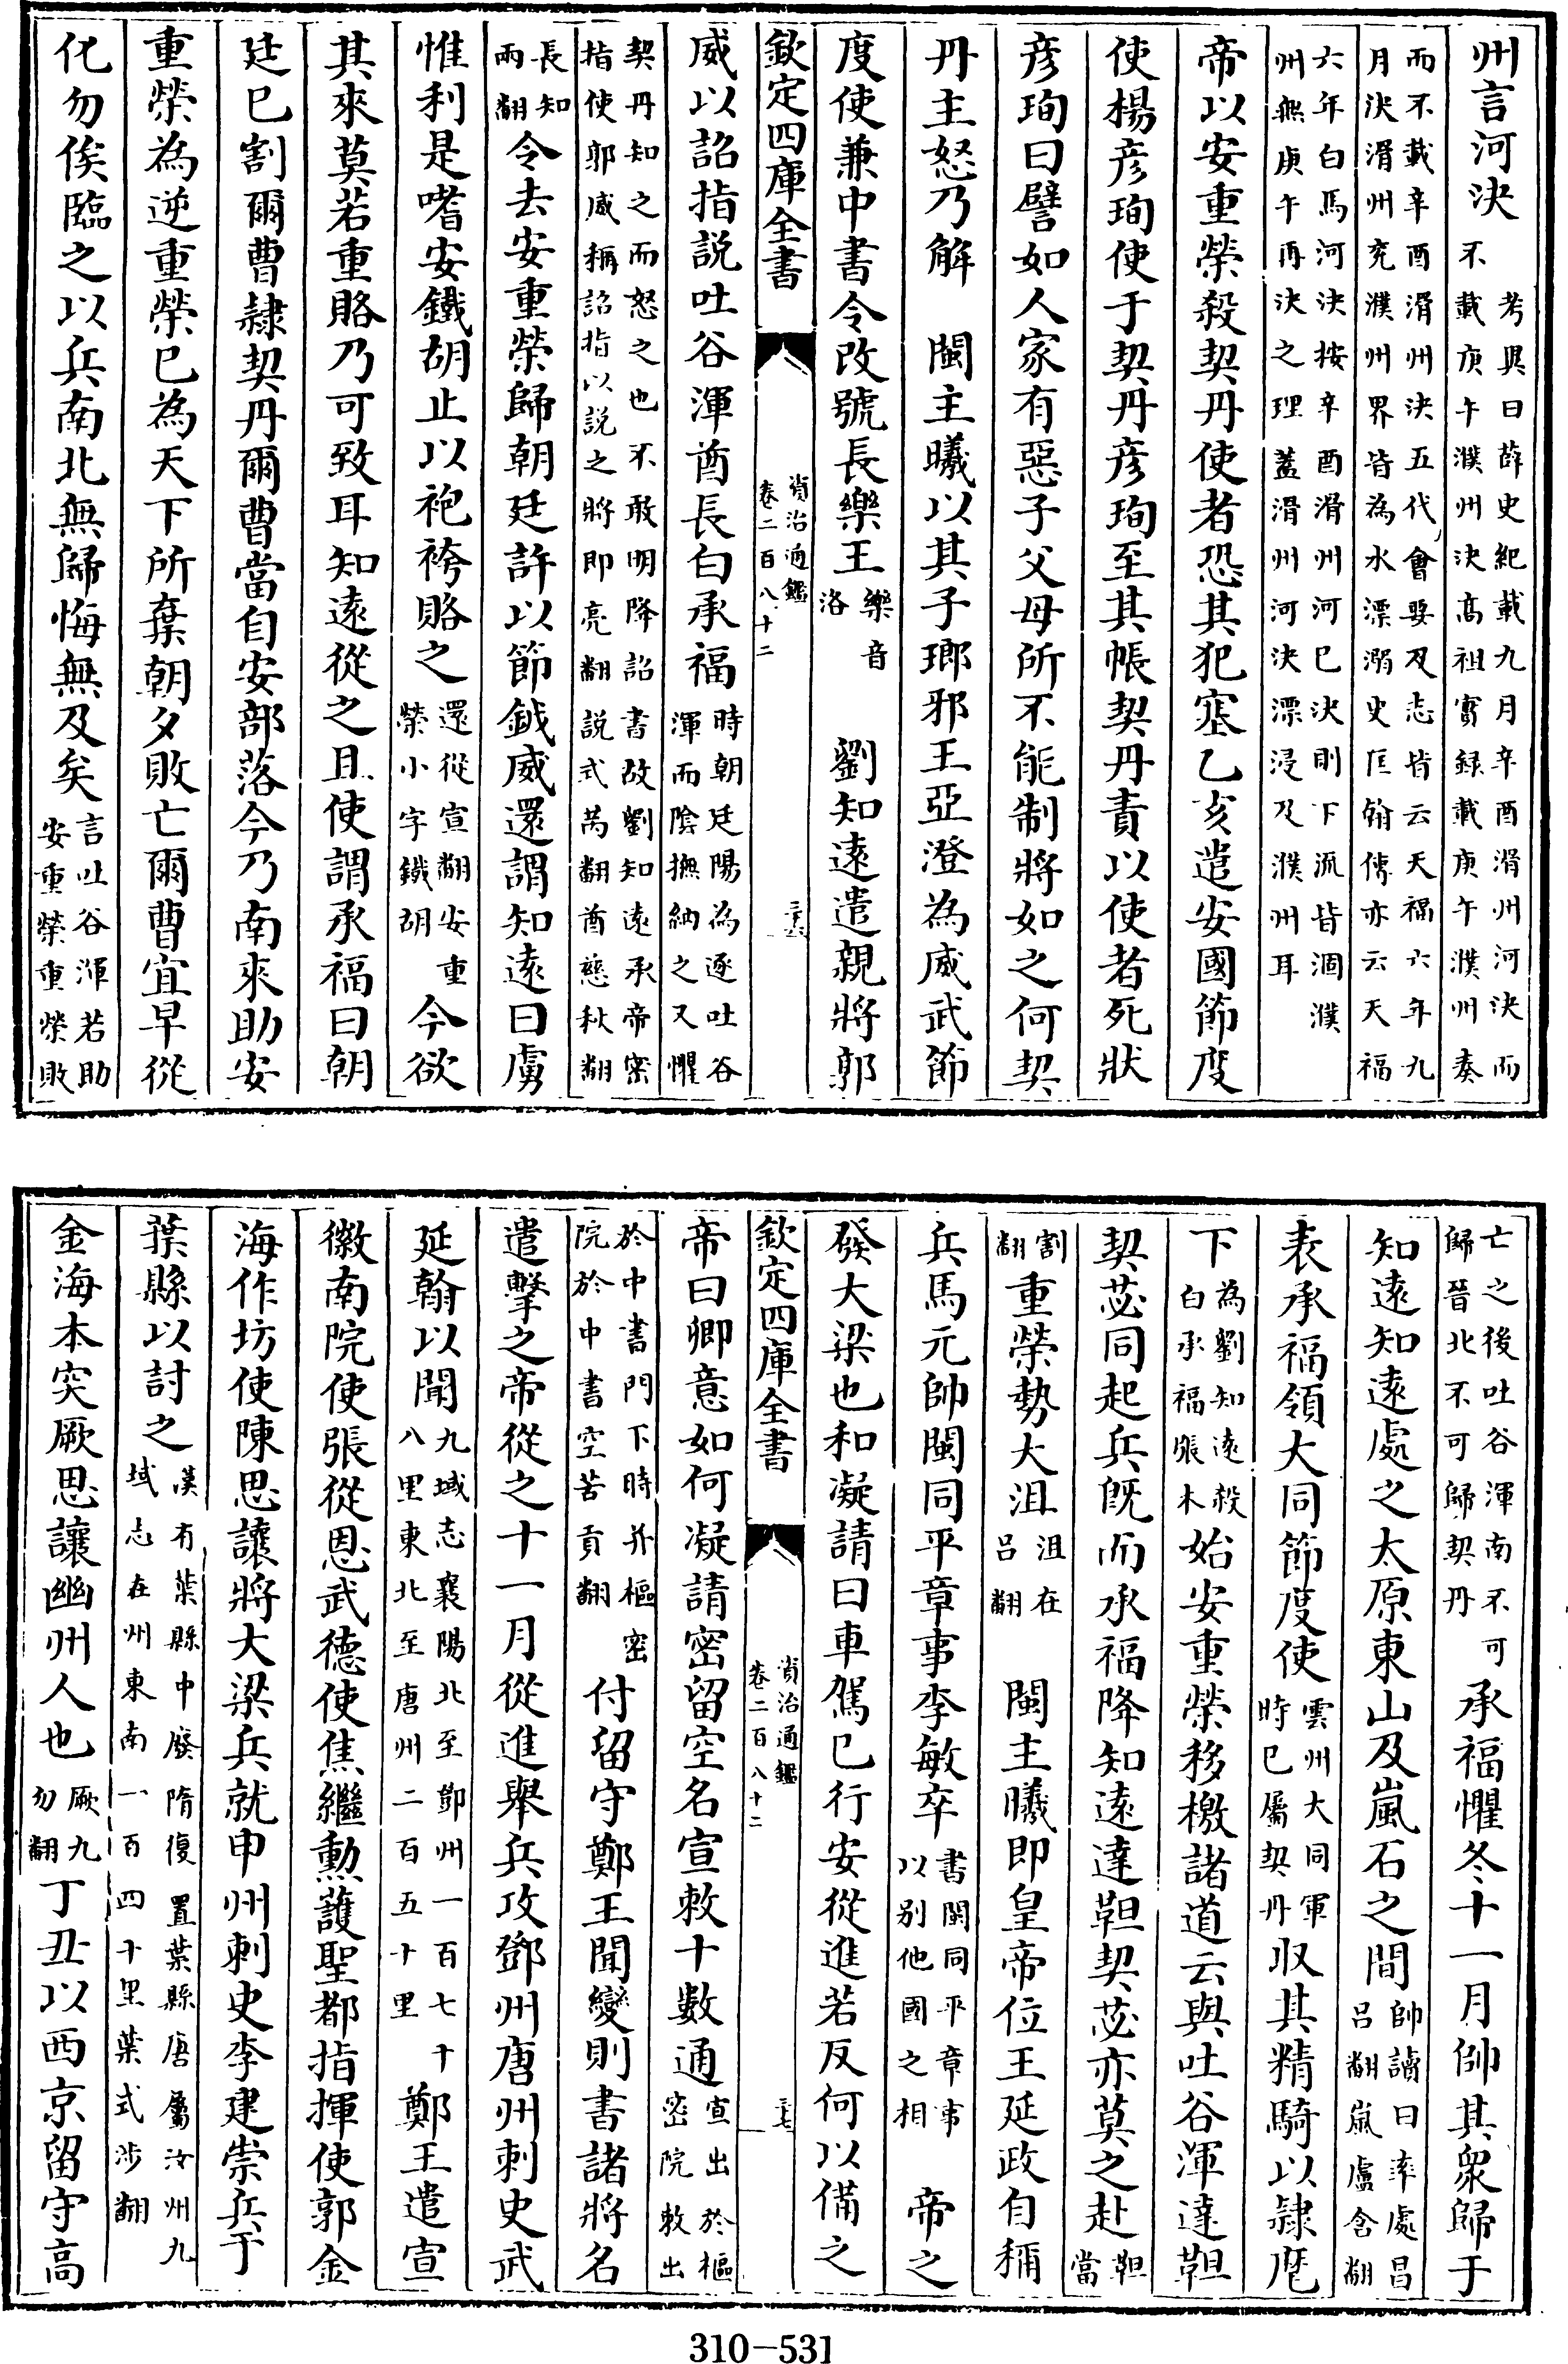 州言河決考異曰薛史紀載九月辛酉滑州河決而不載庚午濮州決高祖實録載庚午濮州奏
而不載辛酉滑州決五代會要及志皆云天福六年九月決滑州兖濮州界皆為水漂溺史匡翰傳亦云天福
六年白馬河決按辛酉滑州河已決則下流皆涸濮州無庚午再決之理蓋滑州河決漂浸及濮州耳
帝以安重榮殺契丹使者恐其犯塞乙亥遣安國節度
使楊彥珣使于契丹彥珣至其帳契丹責以使者死狀
彥珣曰譬如人家有惡子父母所不能制將如之何契
丹主怒乃解　閩主曦以其子瑯邪王亞澄為威武節
度使兼中書令改號長樂王樂音洛　劉知遠遣親將郭
欽定四庫全書　資治通鑑卷二百八十二　三十六
威以詔指説吐谷渾酋長白承福時朝廷陽為逐吐谷渾而陰撫納之又懼
契丹知之而怒之也不敢明降詔書故劉知遠承帝密指使郭威稱詔指以説之將即亮翻説式芮翻酋慈秋翻
長知兩翻令去安重榮歸朝廷許以節鉞威還謂知遠曰虜
惟利是嗜安鐵胡止以袍袴賂之還從宣翻安重榮小字鐵胡今欲
其來莫若重賂乃可致耳知遠從之且使謂承福曰朝
廷已割爾曹隷契丹爾曹當自安部落今乃南來助安
重榮為逆重榮已為天下所棄朝夕敗亡爾曹宜早從
化勿俟臨之以兵南北無歸悔無及矣言吐谷渾若助安重榮重榮敗
亡之後吐谷渾南不可歸晉北不可歸契丹承福懼冬十一月帥其衆歸于
知遠知遠處之太原東山及嵐石之間帥讀曰率處昌吕翻嵐盧含翻
表承福領大同節度使雲州大同軍時已屬契丹收其精騎以隷麾
下為劉知遠殺白承福張木始安重榮移檄諸道云與吐谷渾達靼
契苾同起兵既而承福降知遠達靼契苾亦莫之赴靼當
割翻重榮勢大沮沮在吕翻　閩主曦即皇帝位王延政自稱
兵馬元帥閩同平章事李敏卒書閩同平章事以别他國之相　帝之
發大梁也和凝請曰車駕已行安從進若反何以備之
欽定四庫全書　資治通鑑卷二百八十二　三十七
帝曰卿意如何凝請密留空名宣敕十數通宣出於樞密院敕出
於中書門下時并樞密院於中書空苦貢翻付留守鄭王聞變則書諸將名
遣擊之帝從之十一月從進舉兵攻鄧州唐州刺史武
延翰以聞九域志襄陽北至鄧州一百七十八里東北至唐州二百五十里鄭王遣宣
徽南院使張從恩武德使焦繼勲護聖都指揮使郭金
海作坊使陳思讓將大梁兵就申州刺史李建崇兵于
葉縣以討之漢有葉縣中廢隋復置葉縣唐屬汝州九域志在州東南一百四十里葉式涉翻
金海本突厥思讓幽州人也厥九勿翻丁丑以西京留守高
310—531